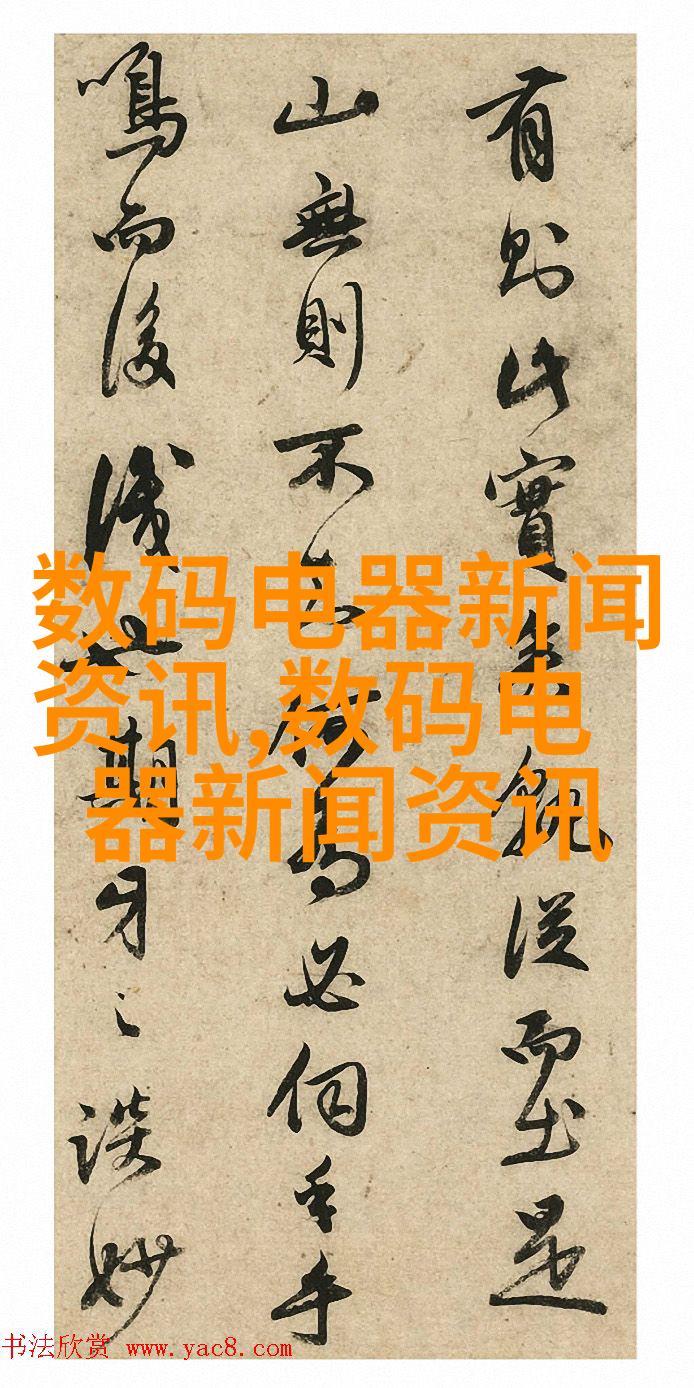 有則此實從而出是
山無則不為必手
鳴而後識期牙之談妙
数码电器新闻
资讯,数码电
器新闻资讯
书法欣赏 www.yac8.com